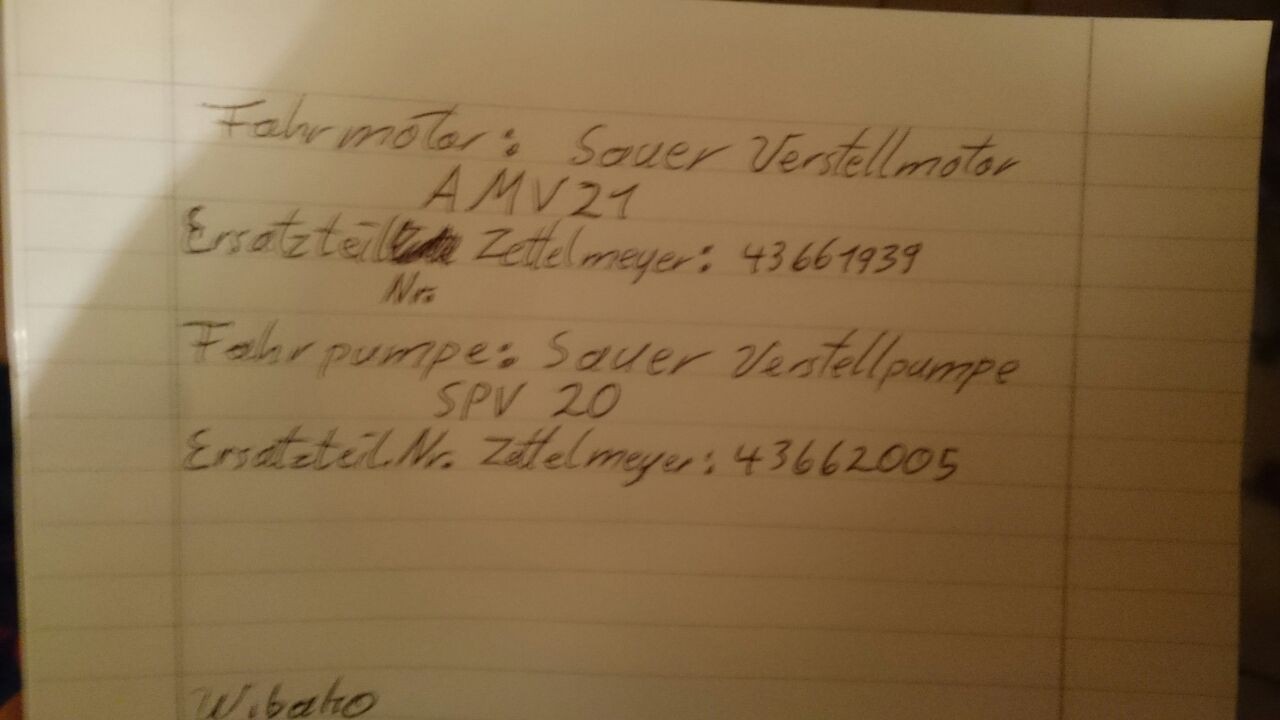 Fahrmotor: Sauer Verstellmotor
AMV21
Ersatzteil Zettelmeyer: 43661939
Nr.
Fahrpumpe: Sauer Verstellpumpe
SPV 20
Ersatzteil.Nr. Zettelmeyer: 43662005